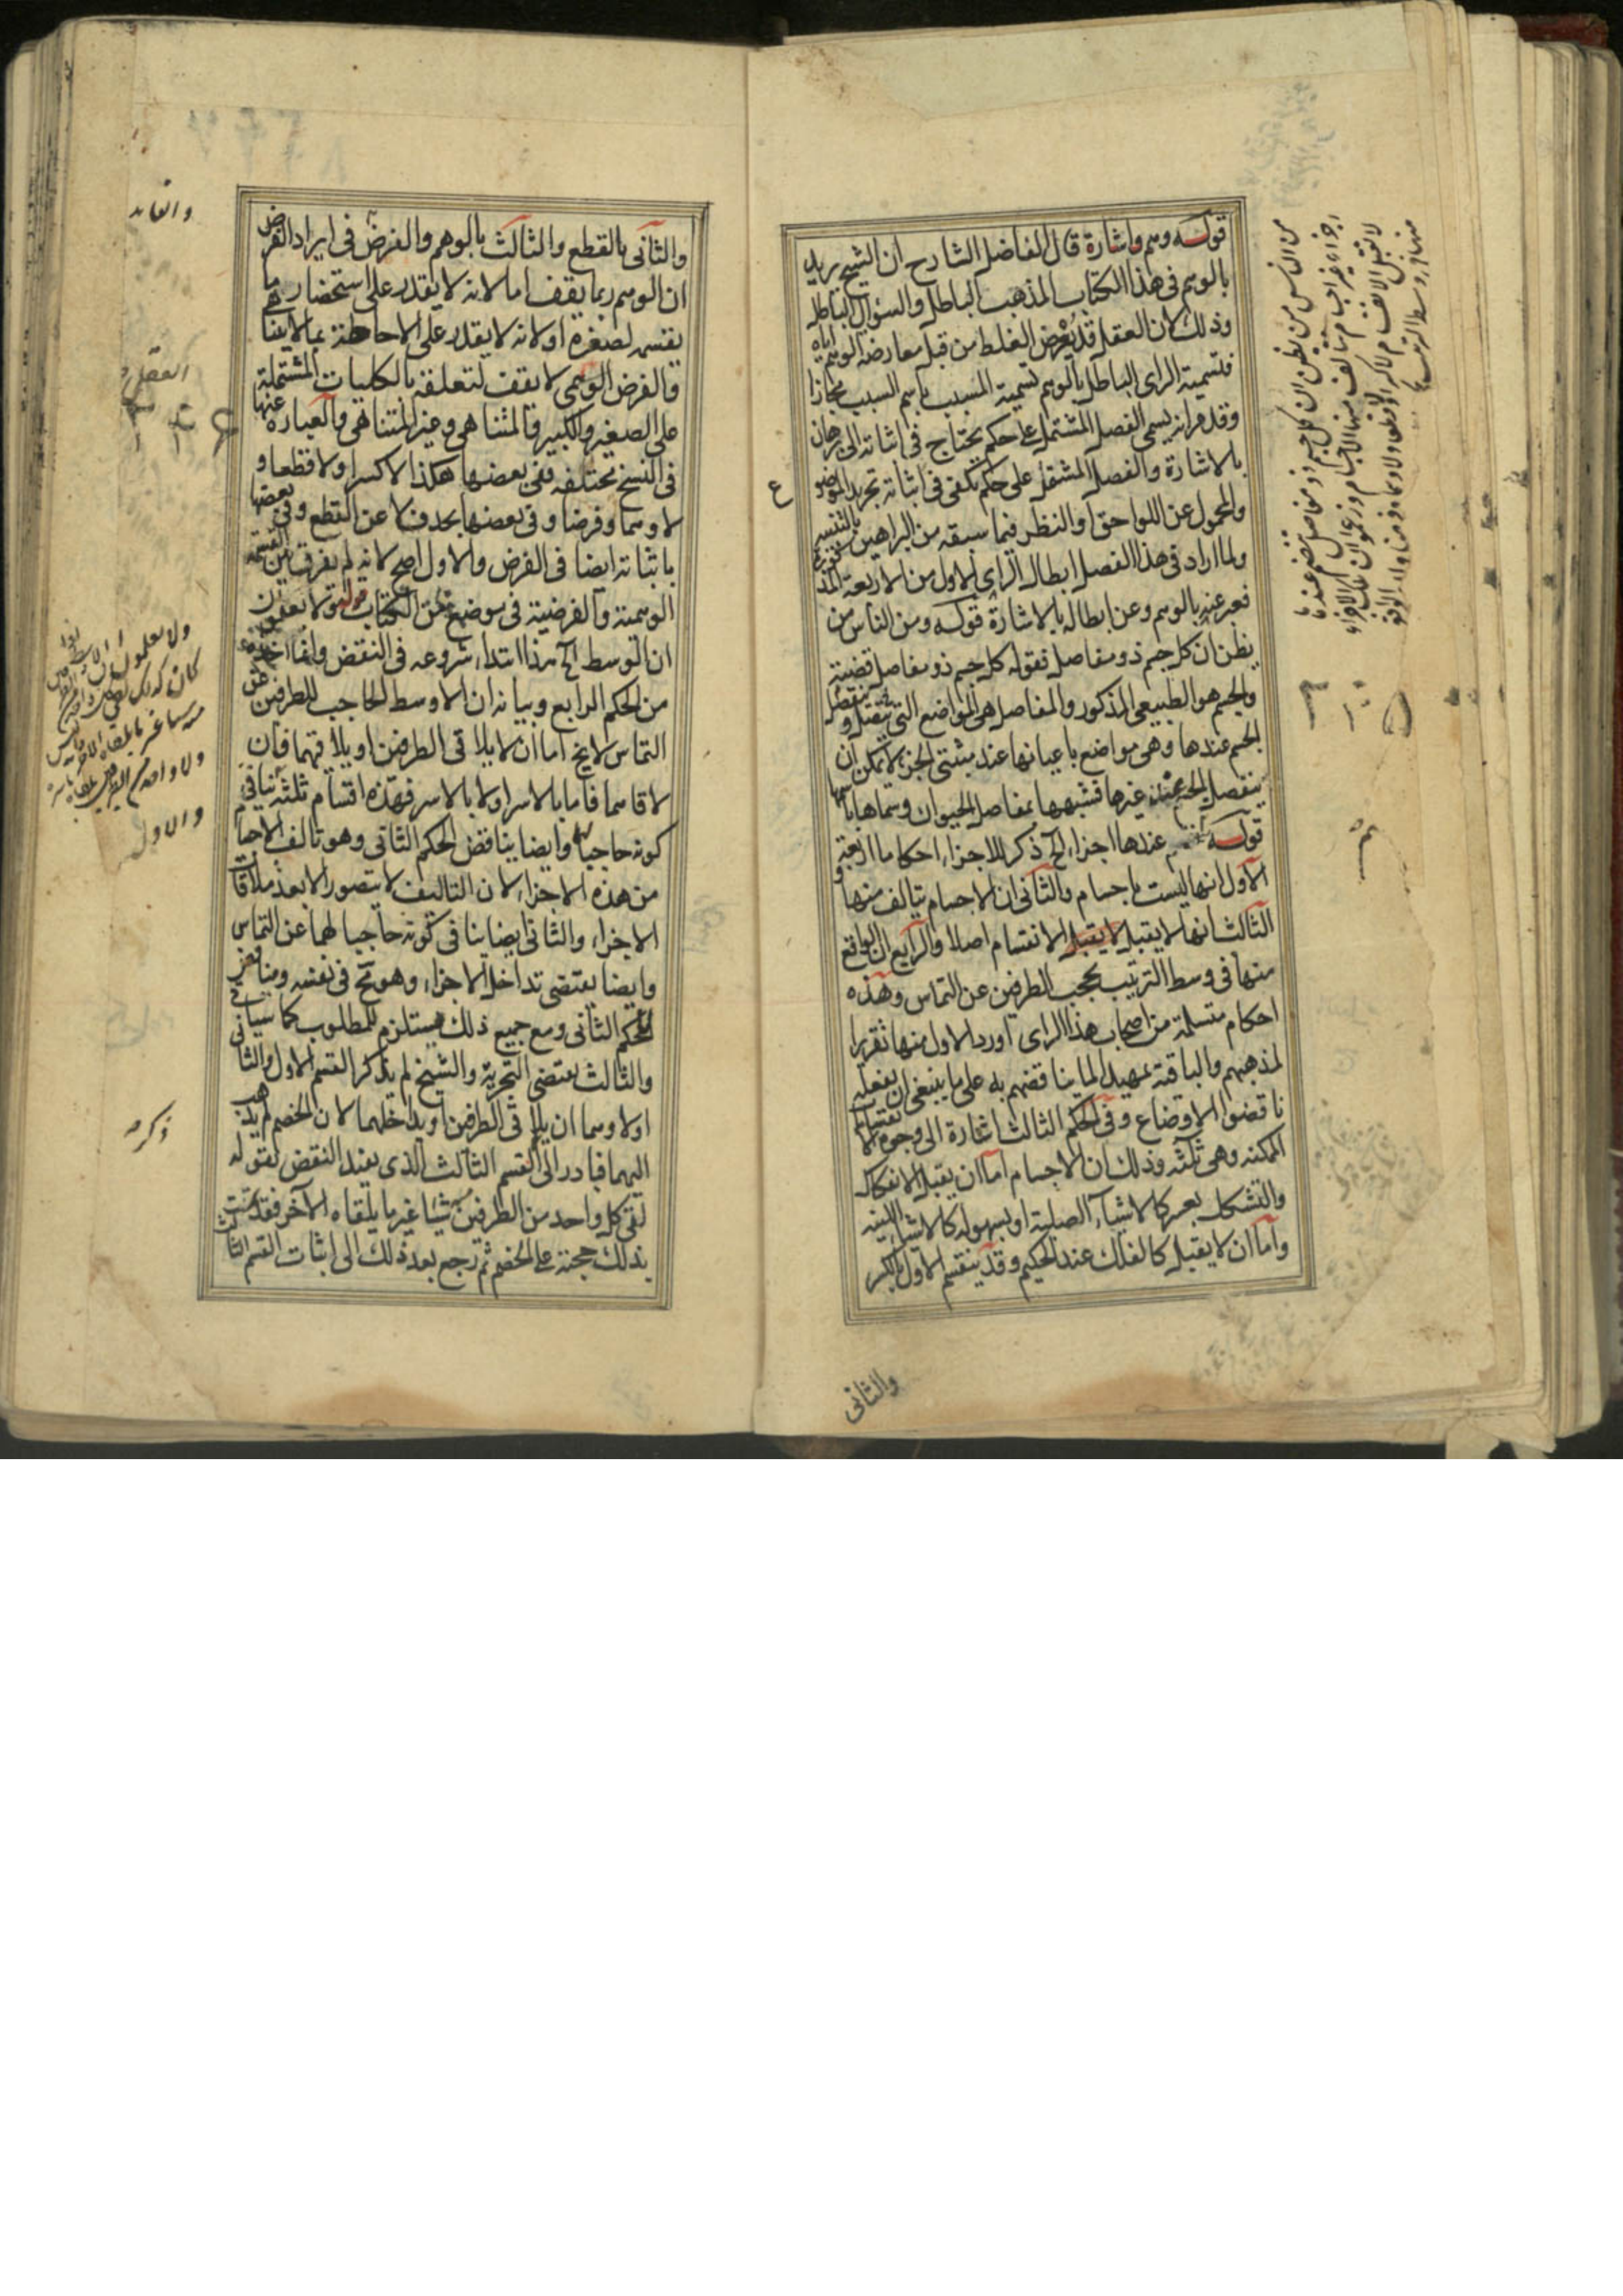 قوله وهم واشارة قال الفاضل الشارح ان الشيخ يريد
بالوهم فى هذا الكتاب المذهب الباطل والسؤال الباطل
وذلك لان العقل قد يعرض الغلط من قبل معارضة الوهم اياه
فتسمية الراى الباطل بالوهم تسمية المسبب باسم السبب مجازا
وقد مر انه يسمى الفصل المشتمل على حكم يحتاج فى اثباته الى برهان
بالاشارة والفصل المشتمل على حكم يكفى فى اثباته تجريد الموضوع
والمحمول عن اللواحق او النظر فيما سبقه من البراهين بالتنبيه
ولما اراد فى هذا الفصل ابطال الراى الاول من الاربعة المذكورة
فعبر عنه بالوهم وعن ابطاله بالاشارة قوله ومن الناس من
يظن ان كل جسم ذو مفاصل فقوله كل جسم ذو مفاصل قضية
والجسم هو الطبيعى المذكور والمفاصل هى المواضع التى ينفصل
الجسم عندها وهى مواضع باعيانها عند مثبتى الجزء لا يمكن ان
ينفصل الجسم عند غيرها فشبهها بمفاصل الحيوان وسماها باسمها
قوله عندها اجزاء الخ ذكر للاجزاء احكاما اربعة
الاول انها ليست باجسام والثانى ان الاجسام يتالف منها و
الثالث انها لا يقبل لا يقبل الانقسام اصلا والرابع ان الواقع
منها فى وسط الترتيب يحجب الطرفين عن التماس وهذه
احكام متسلمة من اصحاب هذا الراى اورد الاول منها تقريرا
لمذهبهم والباقية تمهيدا لما يناقضهم به على ما ينبغى ان يفعله
ناقضوا الاوضاع وفى الحكم الثالث اشارة الى وجوه الانقسام
الممكنة وهى ثلثة وذلك ان الاجسام اما ان يقبل الانفكاك
والتشكل بعسر كالاشياء الصلبة او بسهولة كالاشياء اللينة
واما ان لا يقبل كالفلك عند الحكيم وقد ينقسم الاول بالكسر
والثانى
من الناس من يظن ان كل جسم ذو مفاصل تنضم عندها
اجزاء غير اجسام تتالف منها الاجسام وزعموا ان تلك الاجزاء
لا تقبل الانقسام لا كسرا ولا قطعا ولا وهما وفرضا وان الواقع
منها فى وسط الترتيب
والثانى بالقطع والثالث بالوهم والفرض فى ايراد الفرض
ان الوهم ربما يقف اما لانه لا يقدر على استحضار ما
يقسمه لصغره او لانه لا يقدر على الاحاطة بما لا يتناهى
والفرض الوهمى لا يقف لتعلقه بالكليات المشتملة
على الصغير والكبير والمتناهى وغير المتناهى والعبارة عنها
فى النسخ مختلفة ففى بعضها هكذا لا كسرا ولا قطعا و
لا وهما وفرضا وفى بعضها بحذف لا عن القطع وفى بعضها
باثباته ايضا فى الفرض والاول اصح لانه لم يفرق بين القسمة
الوهمية والفرضية فى موضع من الكتاب قوله ولا يعلمون
ان الوسط الخ هذا ابتداء شروعه فى النقض وانما اخذه
من الحكم الرابع وبيانه ان الاوسط الحاجب للطرفين عن
التماس لا يخ اما ان لا يلاقى الطرفين او يلاقيهما فان
لاقاهما فاما بالاسر او لا بالاسر فهذه اقسام ثلثة ينافى
كونه حاجبا وايضا يناقض الحكم الثانى وهو تالف الاجسام
من هذه الاجزاء لان التاليف لا يتصور الا بعد ملاقات
الاجزاء والثانى ايضا ينافى كونه حاجبا لهما عن التماس
وايضا يقتضى تداخل الاجزاء وهو مح فى نفسه ومناقض
للحكم الثانى ومع جميع ذلك يستلزم للمطلوب كما سياتى
والثالث يقتضى التجزية والشيخ لم يذكر القسم الاول والثانى
اولا وهما ان يلاقى الطرفين او يداخلهما لان الخصم لم يذهب
اليهما فبادر الى القسم الثالث الذى يفيد النقض لقوله
لقى كل واحد من الطرفين شيئا غير ما يلقاه الآخر فقد تمت
بذلك حجته على الخصم ثم رجع بعد ذلك الى اثبات القسم الثالث
العقلى
ولا يعلمون ان الاوسط اذا
كان كذلك لقى كل واحد من الطرفين
منه شيئا غير ما يلقاه الآخر
والاول
ذكره